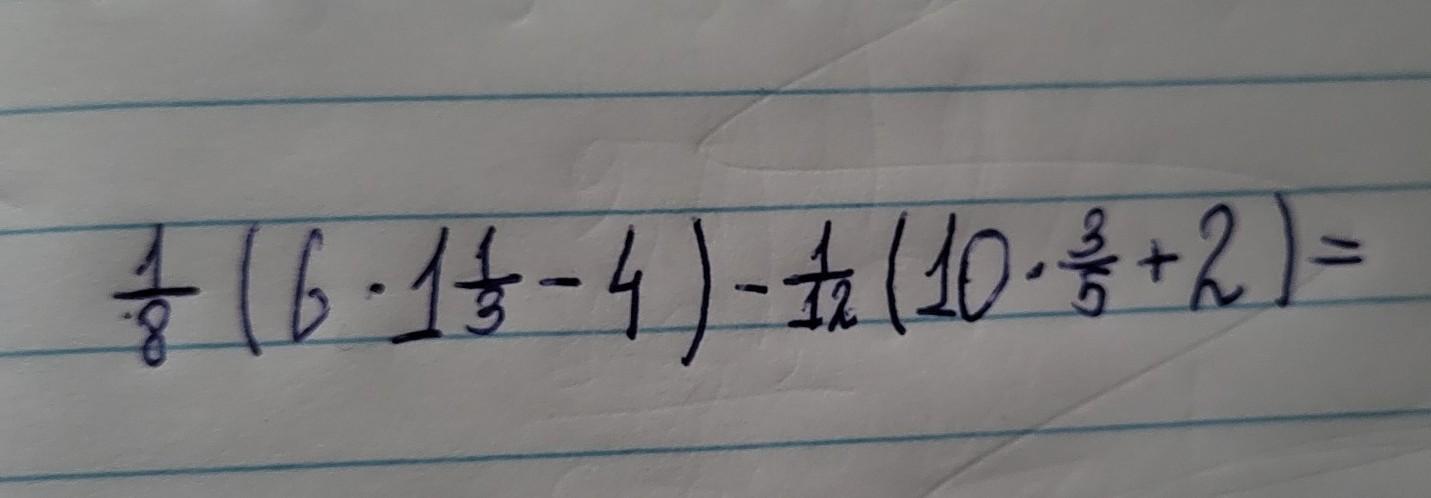 1/8 (6 · 1 1/3 - 4) - 1/12 (10 · 3/5 + 2) =